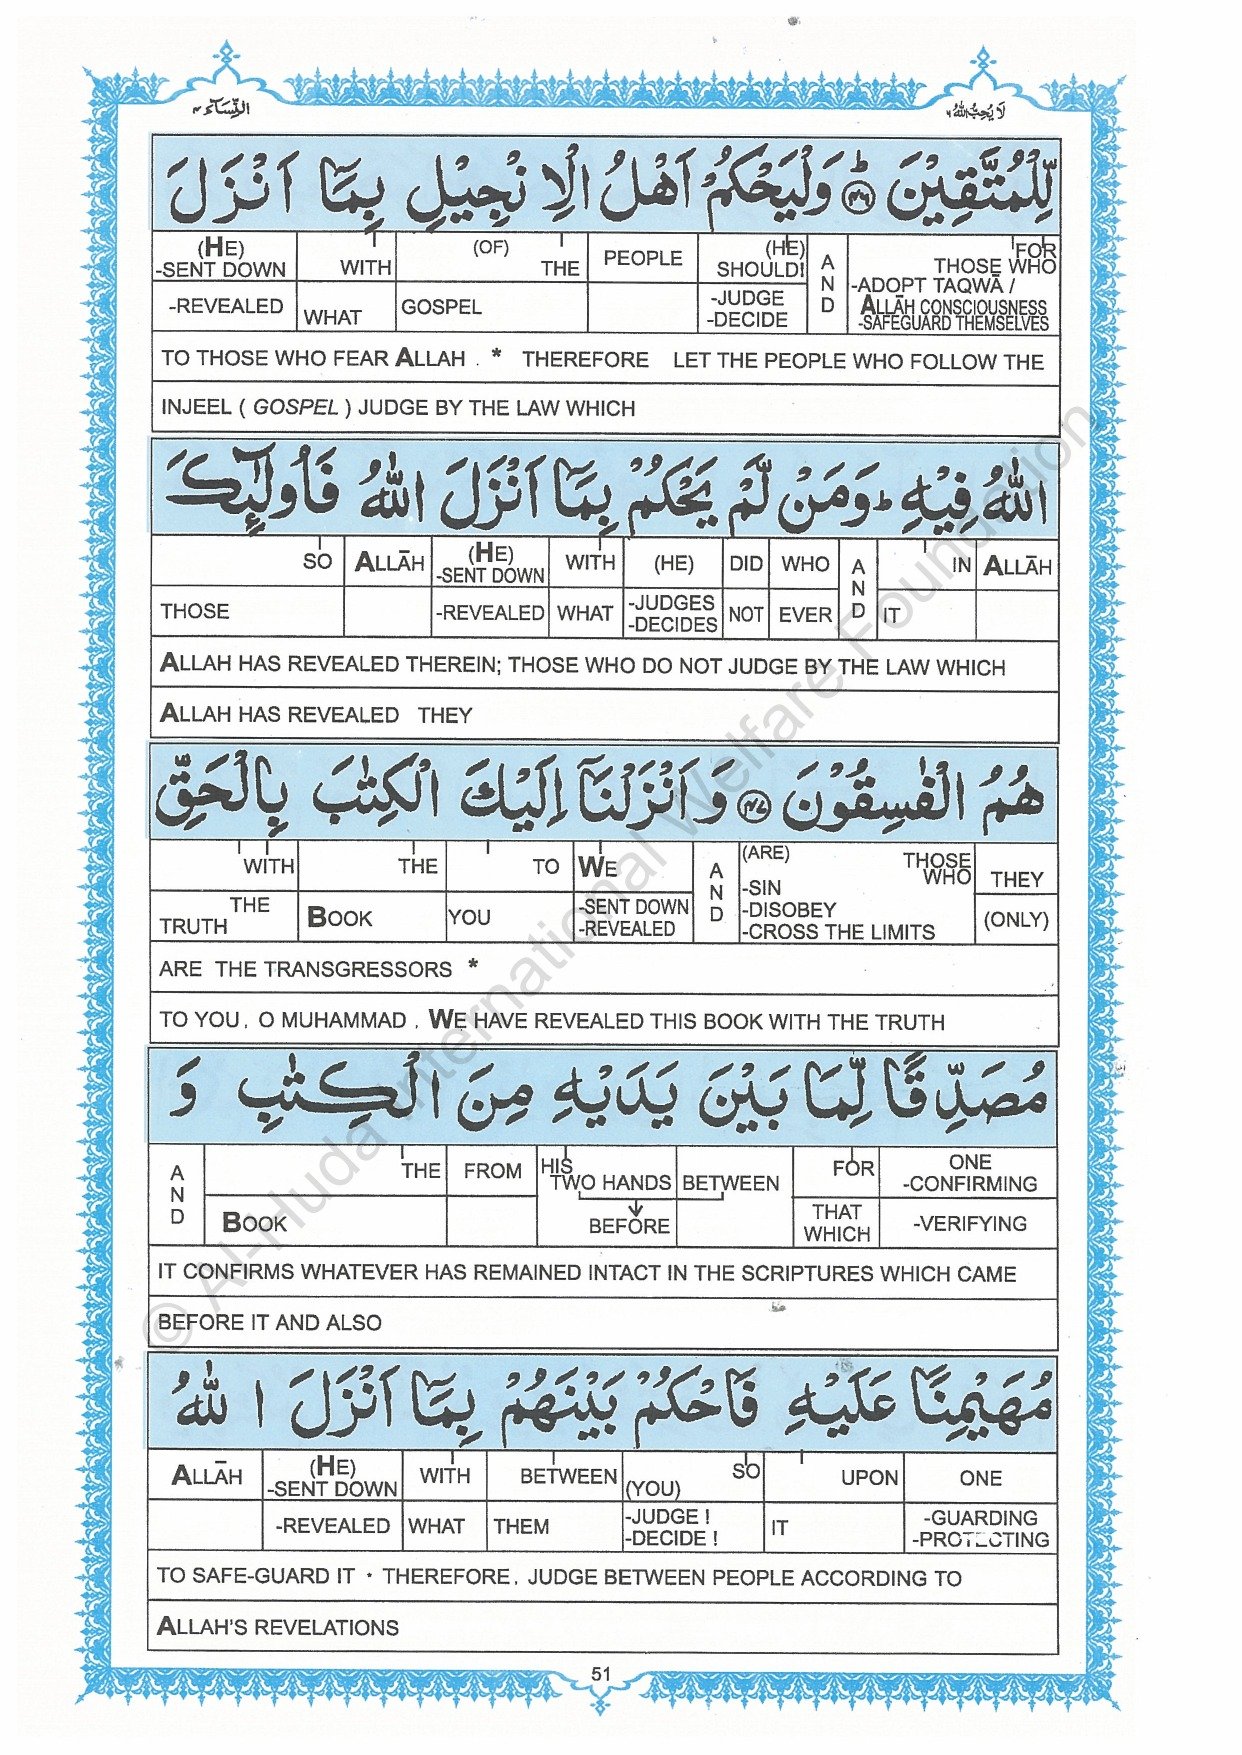 النِّسَاء ٤
لَا يُحِبُّ اللهُ ٦
لِّلْمُتَّقِيْنَ ﴿٤٦﴾ؕ وَلْيَحْكُمْ اَهْلُ الْاِنْجِيْلِ بِمَاۤ اَنْزَلَ
(HE) -SENT DOWN WITH (OF) THE PEOPLE (HE) SHOULD! AND FOR THOSE WHO
-REVEALED WHAT GOSPEL -JUDGE -DECIDE -ADOPT TAQWĀ / ALLĀH CONSCIOUSNESS -SAFEGUARD THEMSELVES
TO THOSE WHO FEAR ALLAH . * THEREFORE LET THE PEOPLE WHO FOLLOW THE
INJEEL ( GOSPEL ) JUDGE BY THE LAW WHICH
اللّٰهُ فِيْهِ ؕ وَمَنْ لَّمْ يَحْكُمْ بِمَاۤ اَنْزَلَ اللّٰهُ فَاُولٰٓئِكَ
SO ALLĀH (HE) -SENT DOWN WITH (HE) DID WHO AND IN ALLĀH
THOSE -REVEALED WHAT -JUDGES -DECIDES NOT EVER IT
ALLAH HAS REVEALED THEREIN; THOSE WHO DO NOT JUDGE BY THE LAW WHICH
ALLAH HAS REVEALED THEY
هُمُ الْفٰسِقُوْنَ ﴿٤٧﴾ وَاَنْزَلْنَاۤ اِلَيْكَ الْكِتٰبَ بِالْحَقِّ
WITH THE TO WE AND (ARE) THOSE WHO THEY
THE TRUTH BOOK YOU -SENT DOWN -REVEALED -SIN -DISOBEY -CROSS THE LIMITS (ONLY)
ARE THE TRANSGRESSORS *
TO YOU, O MUHAMMAD , WE HAVE REVEALED THIS BOOK WITH THE TRUTH
مُصَدِّقًا لِّمَا بَيْنَ يَدَيْهِ مِنَ الْكِتٰبِ وَ
AND THE FROM HIS TWO HANDS BETWEEN FOR ONE -CONFIRMING
BOOK BEFORE THAT WHICH -VERIFYING
IT CONFIRMS WHATEVER HAS REMAINED INTACT IN THE SCRIPTURES WHICH CAME
BEFORE IT AND ALSO
مُهَيْمِنًا عَلَيْهِ فَاحْكُمْ بَيْنَهُمْ بِمَاۤ اَنْزَلَ اللّٰهُ
ALLĀH (HE) -SENT DOWN WITH BETWEEN (YOU) SO UPON ONE
-REVEALED WHAT THEM -JUDGE ! -DECIDE ! IT -GUARDING -PROTECTING
TO SAFE-GUARD IT · THEREFORE, JUDGE BETWEEN PEOPLE ACCORDING TO
ALLAH'S REVELATIONS
51
© Al-Huda International Welfare Foundation